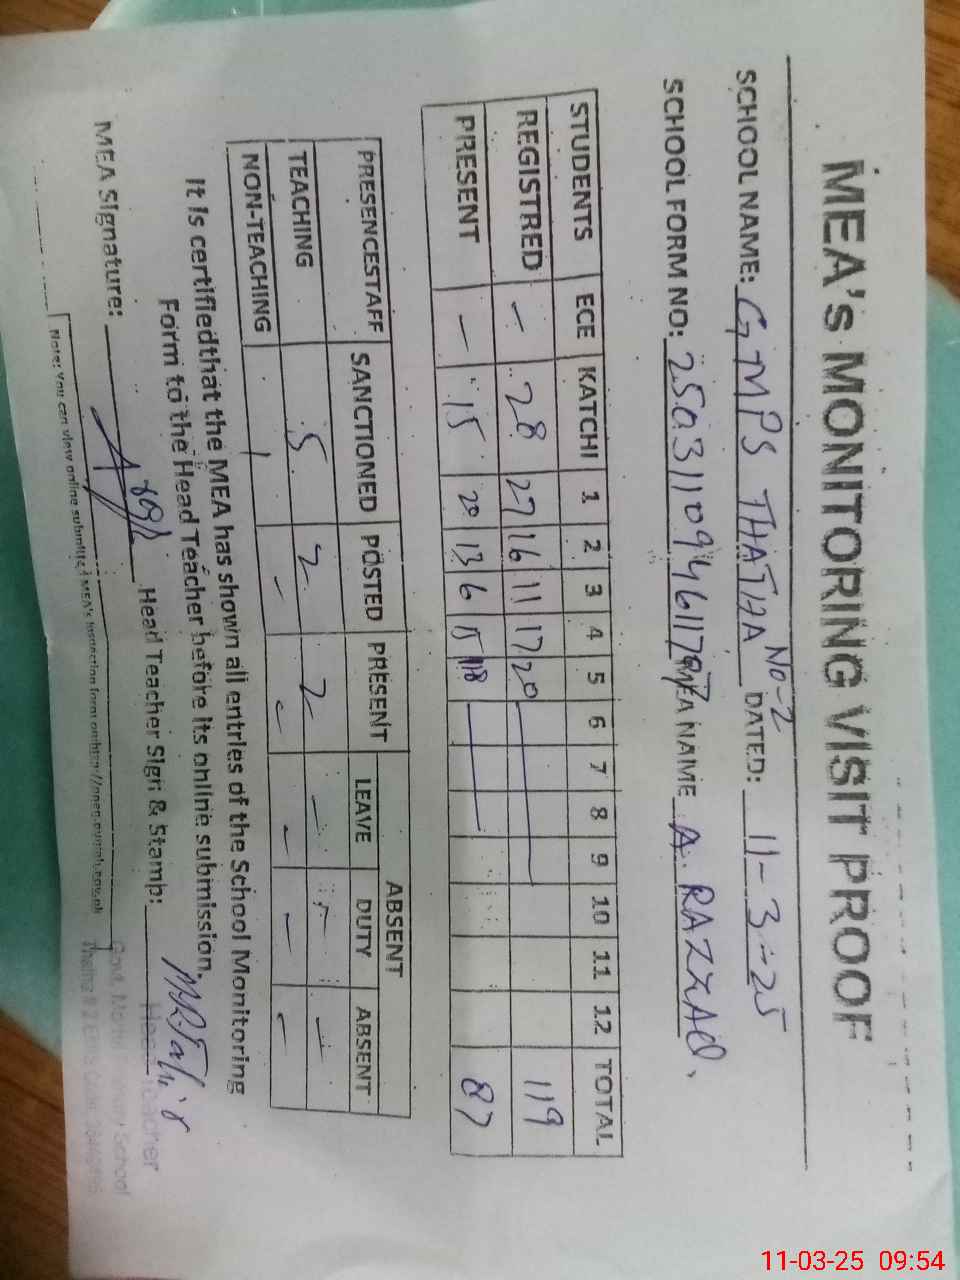 MEA's MONITORING VISIT PROOF
SCHOOL NAME: GMPS THATHA No-2 DATED: 11-3-25
SCHOOL FORM NO: MEA NAME A. RAZZAQ.
STUDENTS ECE KATCHI 1 2 3 4 5 6 7 8 9 10 11 12 TOTAL
REGISTRED - 28 27 16 11 17 20 119
PRESENT - 15 20 13 6 15 18 87
PRESENCESTAFF SANCTIONED POSTED PRESENT ABSENT
LEAVE DUTY ABSENT
TEACHING 5 2 2 - - -
NON-TEACHING 1 - - - - -
It is certifiedthat the MEA has shown all entries of the School Monitoring
Form to the Head Teacher before its online submission.
MEA Signature: Head Teacher Sign & Stamp:
Head Teacher
Govt. Primary School
Note: You can view online submitted MEA's inspection form on
11-03-25 09:54